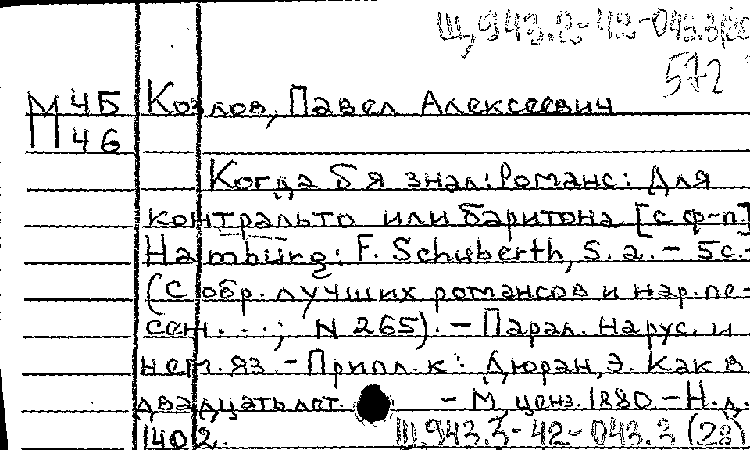 Щ943.2-42-043.3(2
572
М 45 Козлов, Павел Алексеевич
П 46
Когда б я знал: Романс: Для
контральто или баритона [с ф-п]
Hamburg: F. Schuberth, S. a. - 5с.-
(Собр. лучших романсов и нар. пе-
сен. ...; N 265). - Парал. на рус. и
нем. яз. - Припл. к: Дюран, Э. Как в
двадцать лет. - М, ценз. 1880. - Н. д.
1402. Щ943.3-42-043.3 (28)